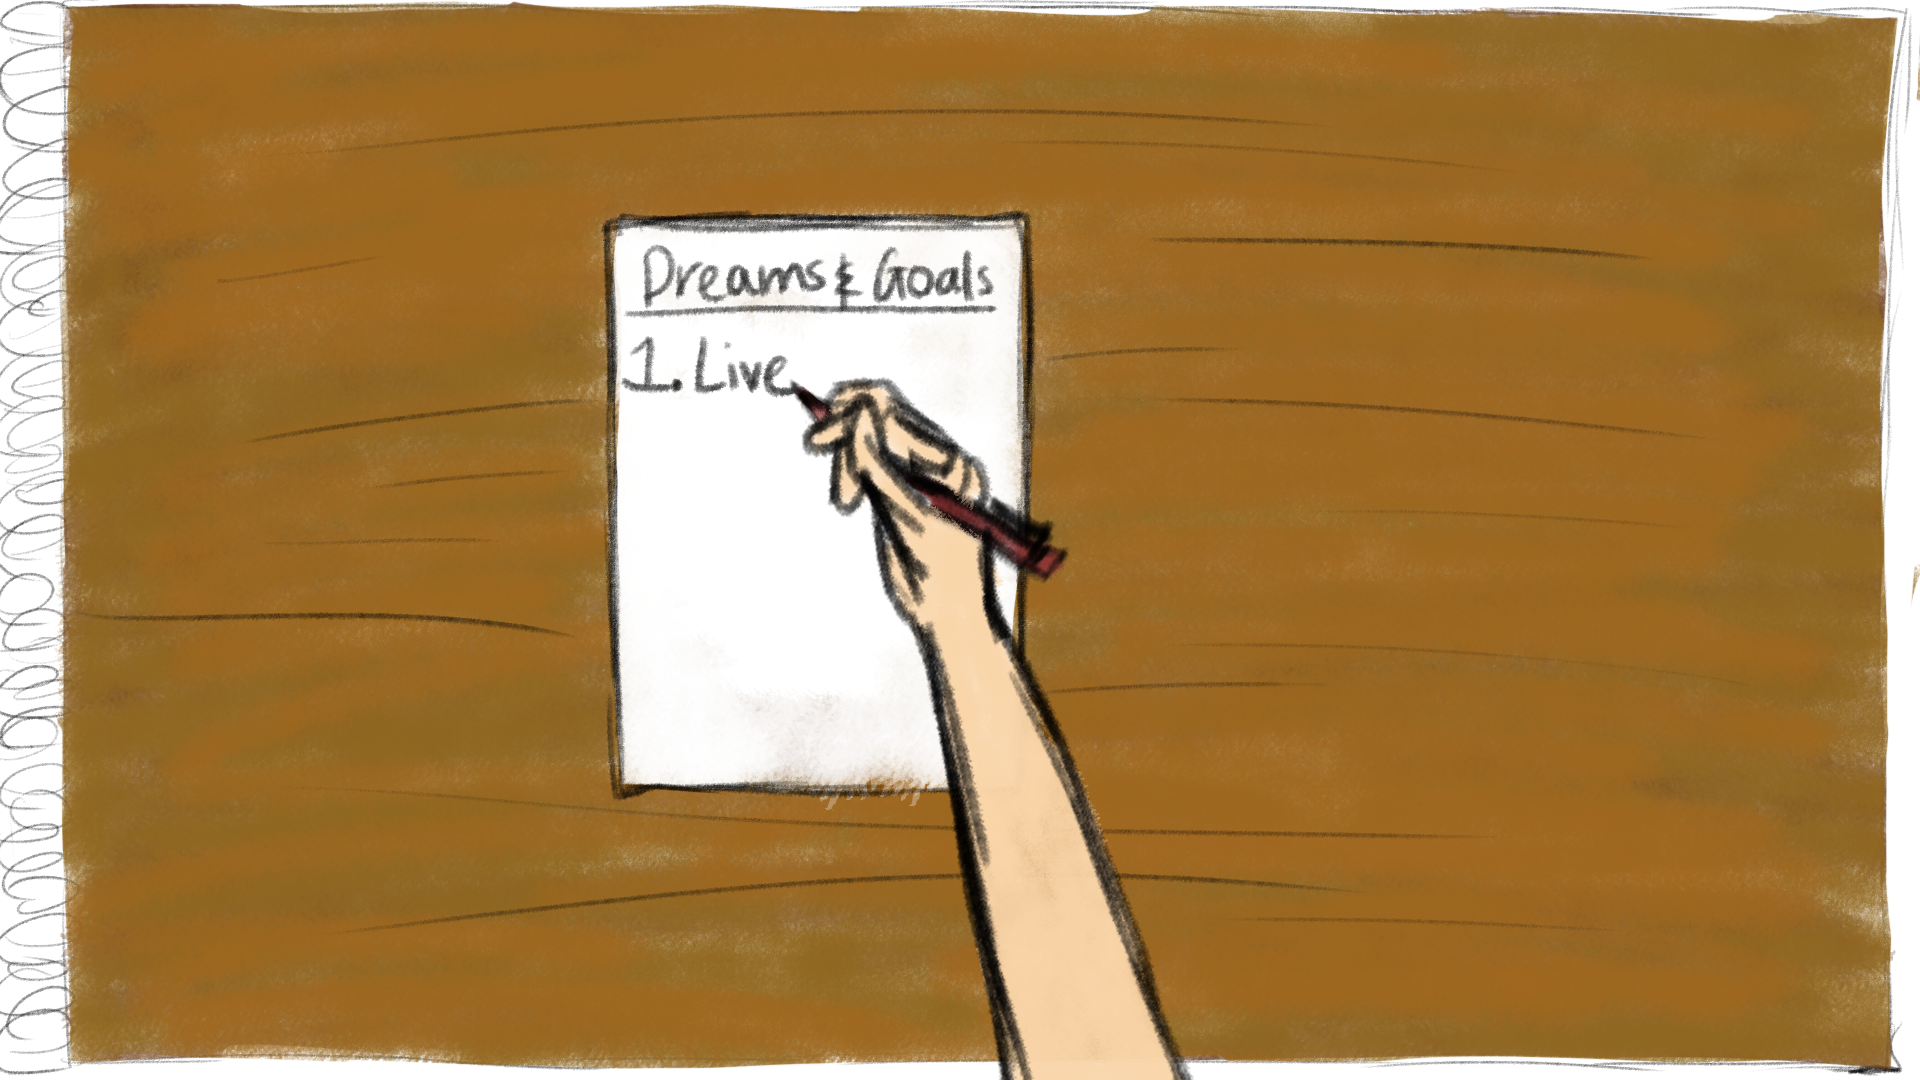 Dreams & Goals
1. Live